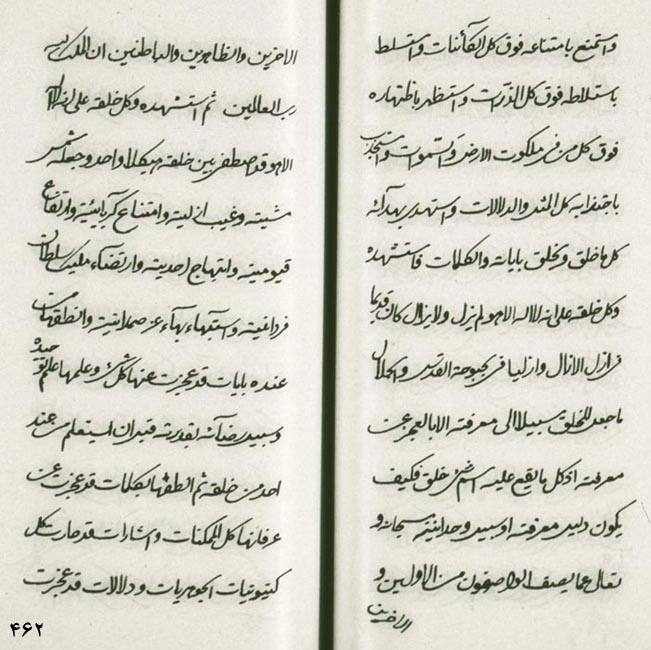 واستمنع بامتناعه فوق كل الكائنات واستسلط
باستلاطه فوق كل الذرات واستظهر باظهاره
فوق كل من في ملكوت الارض والسموات
باجتذابه كل المثل والدلالات واستهدى بهدآئه
كل ما خلق ويخلق باياته والكلمات فاستشهده
وكل خلقه على انه لا اله الا هو لم يزل ولا يزال كان قديما
في ازل الازال وازليا في بحبوحة القدس والجلال
ما جعل للخلق سبيلا الى معرفته الا بالعجز عن
معرفته اذ كل ما يقع عليه اسم شئ خلق فكيف
يكون دليل معرفته او سبيل وحدانيته سبحانه و
تعالى عما يصف الواصفون من الاولين و
الاخرين
الاخرين والظاهرين والباطنين ان الملك لله
رب العالمين ثم استشهده وكل خلقه على انه لا اله
الا هو قد اصطفى بين خلقه هيكلا واحد وجعله شمس
مشيته وغيب ازليته وامتناع كربائيته وارتفاع
قيوميته وابتهاج احديته وارتضاء مليك سلطان
فردانيته واستبهاء بهاء عز صمدانيته وانطقها من
عنده بايات قد عجزت عنها كل شئ وعلمها علم التوحيد
وسبيل رضآئه بقدرته قبل ان استعلم من عند
احد من خلقه ثم انطقها بكلمات قد عجزت عن
عرفانها كل الممكنات واشارات قد حارت كل
كينونيات الجوهريات ودلالات قد عجزت
۴۶۲